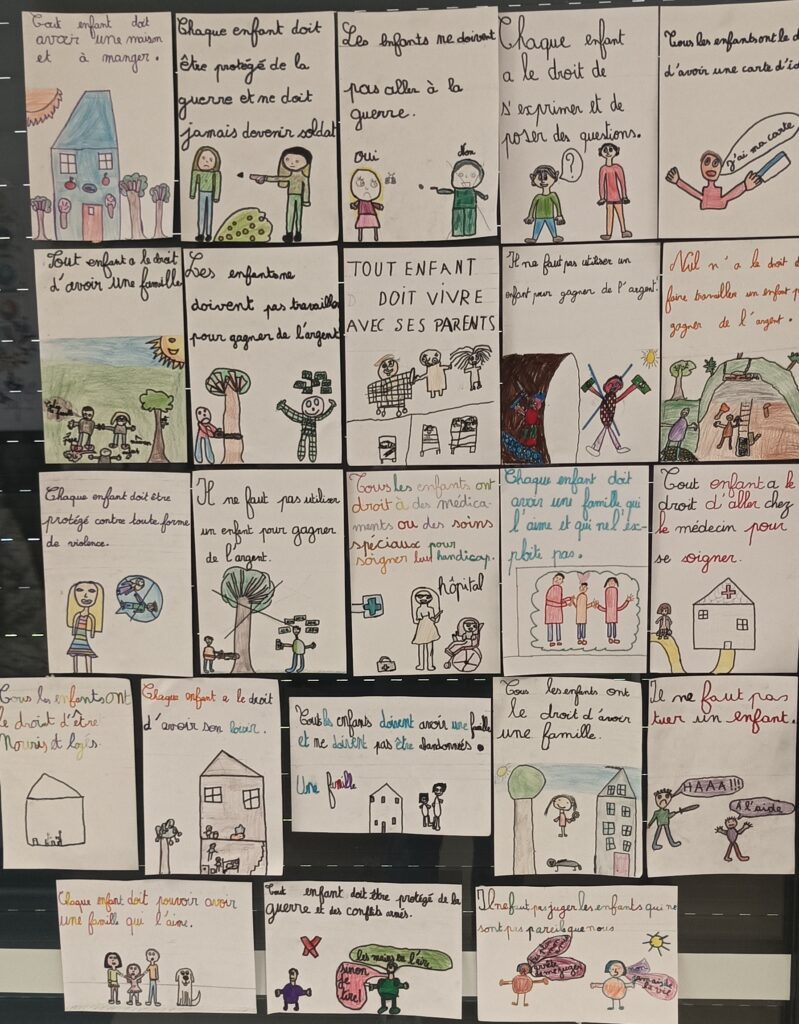 Tout enfant doit
avoir une maison
et à manger.
Chaque enfant doit
être protégé de la
guerre et ne doit
jamais devenir soldat
Les enfants ne doivent
pas aller à la
guerre.
oui
Non
Chaque enfant
a le droit de
s'exprimer et de
poser des questions.
?
Tous les enfants ont le d
d'avoir une carte d'id
J'ai ma carte
Tout enfant a le droit
d'avoir une famille
Les enfants ne
doivent pas travailler
pour gagner de l'argent
TOUT ENFANT
DOIT VIVRE
AVEC SES PARENTS
Il ne faut pas utiliser un
enfant pour gagner de l'argent!
Nul n'a le droit d
faire travailler un enfant p
gagner de l'argent.
Chaque enfant doit être
protégé contre toute forme
de violence.
Il ne faut pas utiliser
un enfant pour gagner
de l'argent.
Tous les enfants ont
droit à des médica-
ments ou des soins
spéciaux pour
soigner leur handicap.
hôpital
Chaque enfant doit
avoir une famille qui
l'aime et qui ne l'ex-
ploite pas.
Tout enfant a le
droit d'aller chez
le médecin pour
se soigner.
Tous les enfants ont
le droit d'être
Nouris et logés.
Chaque enfant a le droit
d'avoir son loisir.
Tous les enfants doivent avoir une famille
et ne doivent pas être abandonnés.
Une famille
Tous les enfants ont
le droit d'avoir
une famille.
Il ne faut pas
tuer un enfant.
HAAA!!!
A l'aide
Chaque enfant doit pouvoir avoir
une famille qui l'aime.
Tout enfant doit être protégé de la
guerre et des conflits armés.
les mains en l'air
sinon
je
tire!
Il ne faut pas juger les enfants qui ne
sont pas pareils que nous